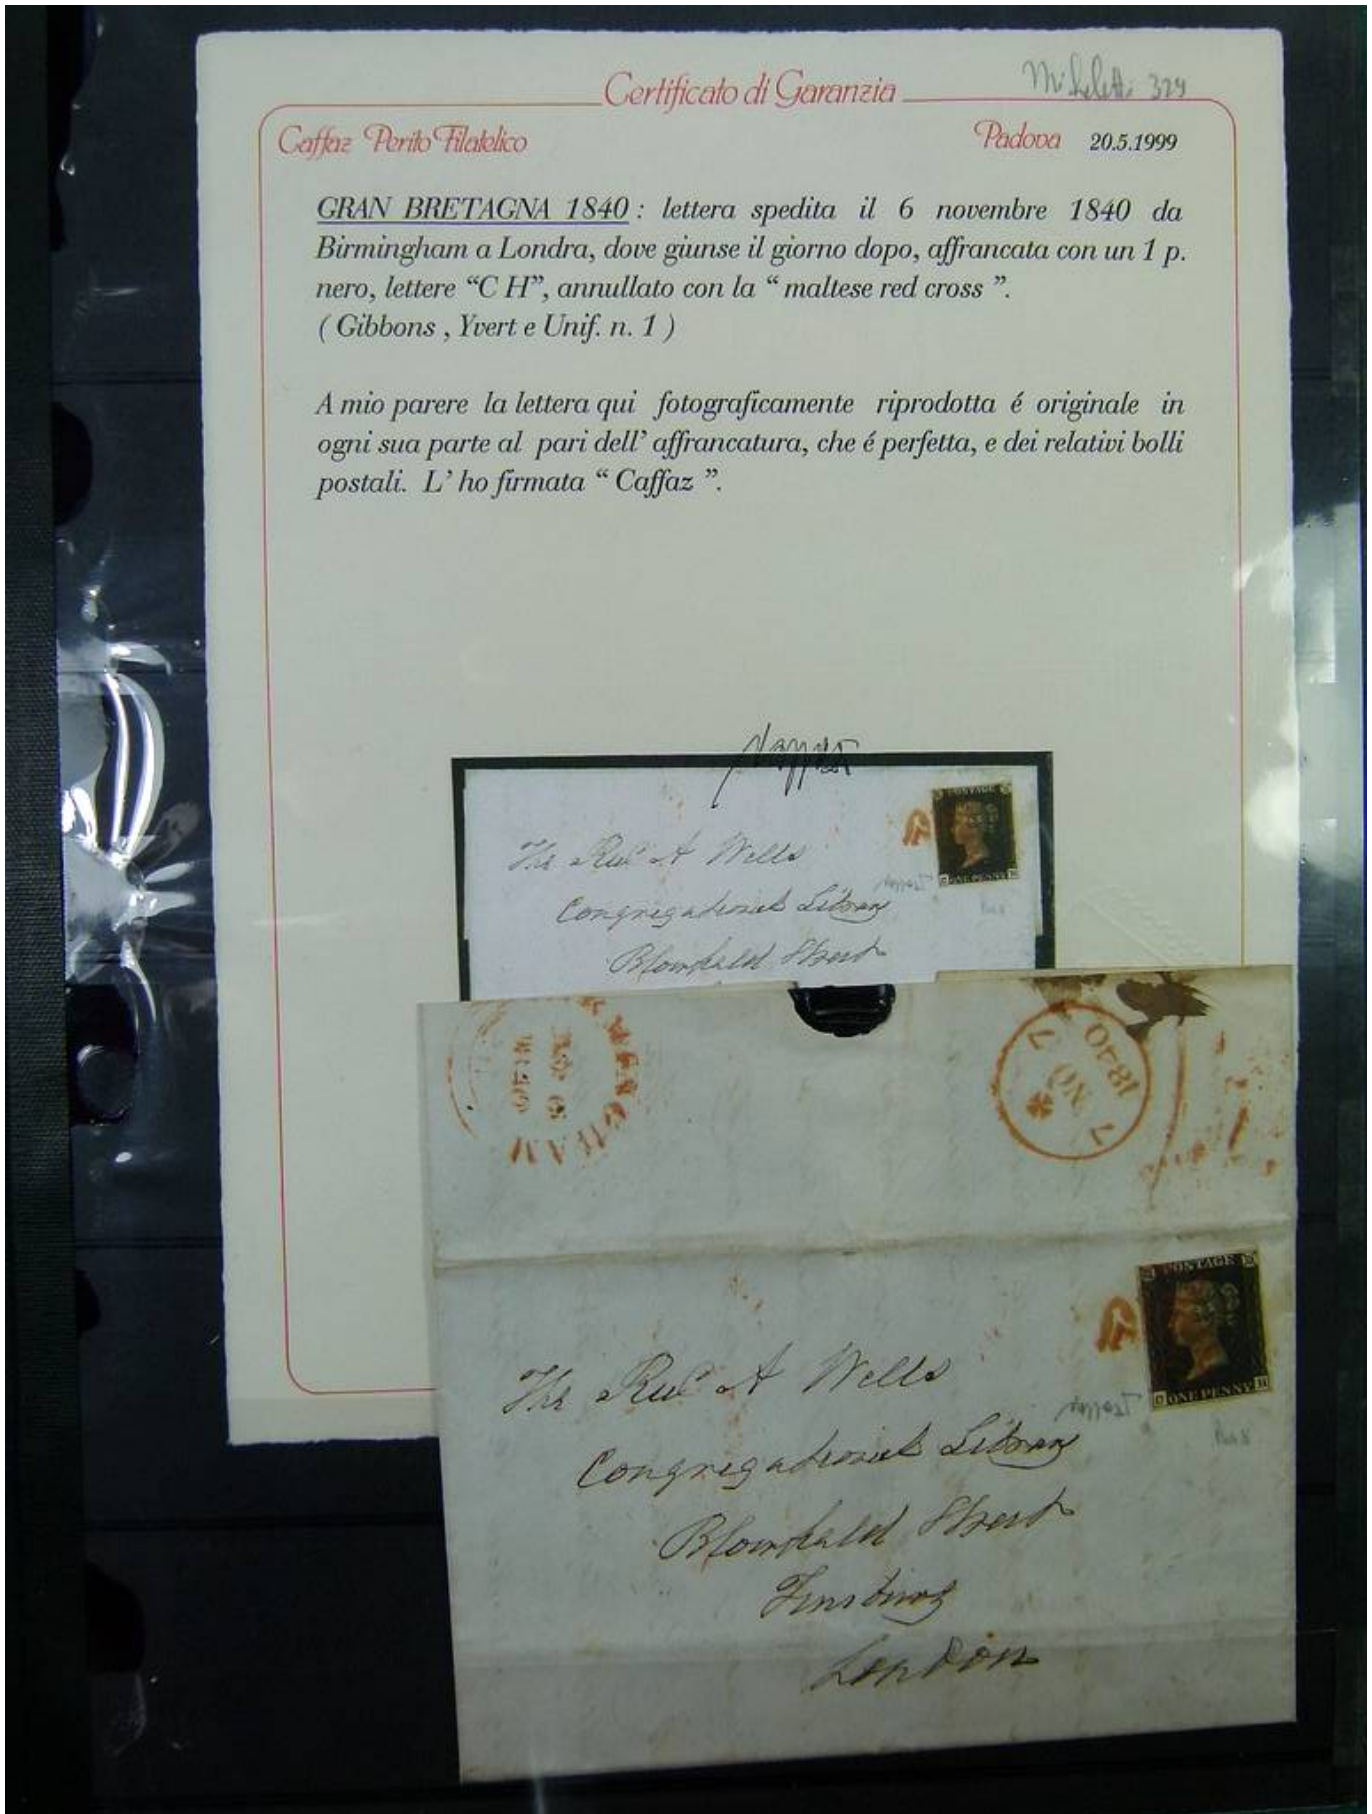 Certificato di Garanzia
Micheletti 329
Caffaz Perito Filatelico
Padova 20.5.1999
GRAN BRETAGNA 1840 : lettera spedita il 6 novembre 1840 da
Birmingham a Londra, dove giunse il giorno dopo, affrancata con un 1 p.
nero, lettere “C H”, annullato con la “ maltese red cross ”.
( Gibbons , Yvert e Unif. n. 1 )
A mio parere la lettera qui fotograficamente riprodotta é originale in
ogni sua parte al pari dell’ affrancatura, che é perfetta, e dei relativi bolli
postali. L’ ho firmata “ Caffaz ”.
POSTAGE
ONE PENNY
The Revd A Wells
Congregational Library
Blomfield Street
NO 6
1840
7 NO 7
1840
POSTAGE
C ONE PENNY H
The Revd A Wells
Congregational Library
Blomfield Street
Finsbury
London